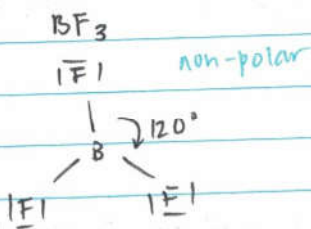 BF₃
|F̅| non-polar
120°
B
|F̲| |F̲|